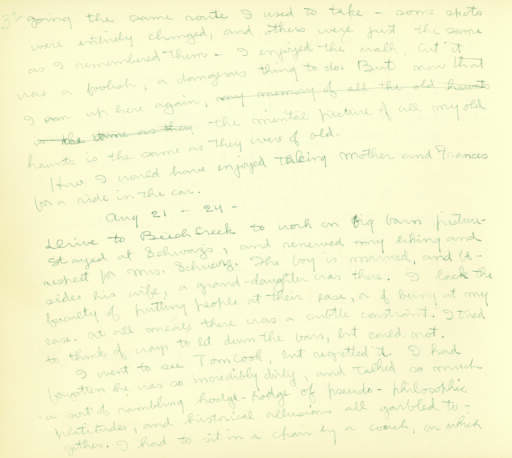 going the same route I used to take - some spots
were entirely changed, and others were just the same
as I remembered them - I enjoyed the walk but it
was a foolish, a dangerous thing to do. But now that
I am up here again, my memory of all the old haunts
is the same as they the mental picture of all my old
haunts is the same as they were of old.
How I would have enjoyed taking Mother and Frances
for a ride in the car.
Aug 21 - 24 -
Drive to Beech Creek to work on big barn picture.
Stayed at Schwarz's, and renewed my liking and
respect for Mrs. Schwarz. The boy is married, and be-
sides his wife, a grand-daughter was there. I lack the
faculty of putting people at their ease, or of being at my
ease. At all meals there was a subtle constraint. I tried
to think of ways to let down the bars, but could not.
I went to see Tom Cook, but regretted it. I had
forgotten he was so incredibly dirty, and talked so much
a sort of rambling hodge-podge of pseudo-philosophic
platitudes, and historical allusions all garbled to-
gether. I had to sit in a chair by a couch, on which